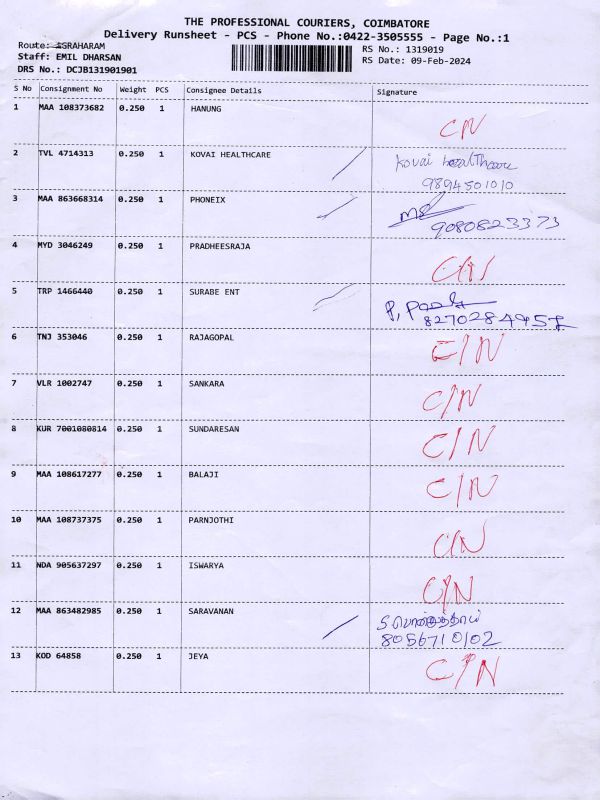 THE PROFESSIONAL COURIERS, COIMBATORE
Delivery Runsheet - PCS - Phone No.:0422-3505555 - Page No.:1
Route: AGRAHARAM
Staff: EMIL DHARSAN
DRS No.: DCJB131901901
RS No.: 1319019
RS Date: 09-Feb-2024
S No Consignment No Weight PCS Consignee Details Signature
1 MAA 108373682 0.250 1 HANUNG CN
2 TVL 4714313 0.250 1 KOVAI HEALTHCARE kovai healthcare
9894501010
3 MAA 863668314 0.250 1 PHONEIX
9080823373
4 MYD 3046249 0.250 1 PRADHEESRAJA C/N
5 TRP 1466440 0.250 1 SURABE ENT
8270284957
6 TNJ 353046 0.250 1 RAJAGOPAL C/N
7 VLR 1002747 0.250 1 SANKARA C/N
8 KUR 7001080814 0.250 1 SUNDARESAN C/N
9 MAA 108617277 0.250 1 BALAJI C/N
10 MAA 108737375 0.250 1 PARNJOTHI C/N
11 NDA 905637297 0.250 1 ISWARYA C/N
12 MAA 863482985 0.250 1 SARAVANAN
8056710102
13 KOD 64858 0.250 1 JEYA C/N